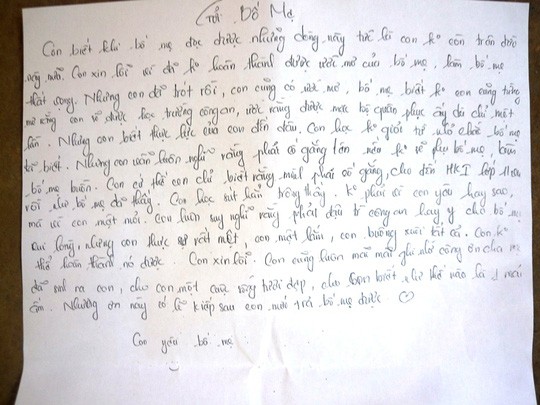 Gửi Bố Mẹ
Con biết khi bố mẹ đọc được những dòng này tức là con ko còn trên đời
này nữa. Con xin lỗi vì đã ko hoàn thành được ước mơ của bố mẹ, làm bố mẹ
thất vọng. Nhưng con đã trót rồi, con cũng có ước mơ, bố mẹ biết ko con cũng từng
mơ rằng con sẽ được học trường công an, ước rằng được mặc bộ quân phục ấy dù chỉ một
lần. Nhưng con biết thực lực của con đến đâu. Con học ko giỏi từ nhỏ chắc bố mẹ
đã biết. Nhưng con luôn luôn nghĩ rằng phải cố gắng lên nếu ko sẽ phụ bố mẹ, làm
bố mẹ buồn. Con có thể con chỉ biết rằng mình phải cố gắng, cho đến HKI lớp
rồi như bố mẹ đã thấy. Con học sút hẳn trông thấy. ko phải vì con yêu hay sao
mà vì con mệt mỏi. Con luôn suy nghĩ rằng phải đậu trg công an hay y cho bố mẹ
vui lòng, nhưng con thực sự rất mệt, con mệt lắm, con buông xuôi tất cả. Con ko
thể hoàn thành nó được. Con xin lỗi. Con cũng luôn mãi mãi ghi nhớ công ơn cha mẹ
đã sinh ra con, cho con một cuộc sống tươi đẹp, cho con biết như thế nào là 1 mái
ấm. Nhưng ơn này có lẽ kiếp sau con mới trả bố mẹ được. ♡
Con yêu bố mẹ